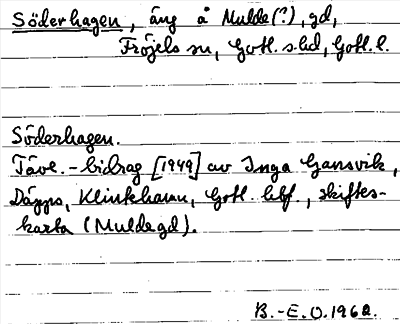 Söderhagen, äng å Mulde(?), gd,
Fröjels sn, Gotl. s. hd, Gotl. l.
Söderhagen.
Tävl.-bidrag [1949] av Inga Gansvik,
Däpps, Klintehamn, Gotl. hbf., skiftes-
karta (Mulde gd).
B.-E. O. 1962.